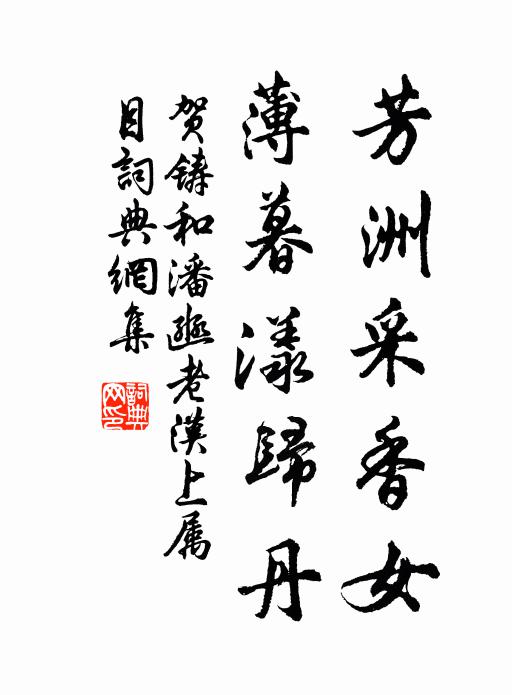 芳洲采香女
薄暮漾歸丹
贺铸和潘豳老漢上属
目詞典網集
詞典网印